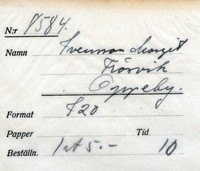 N:r 8584.
Namn Svensson Margit
Törsvik
Oppeby.
Format 920
Papper Tid
Beställn. 1 st 5.- 10